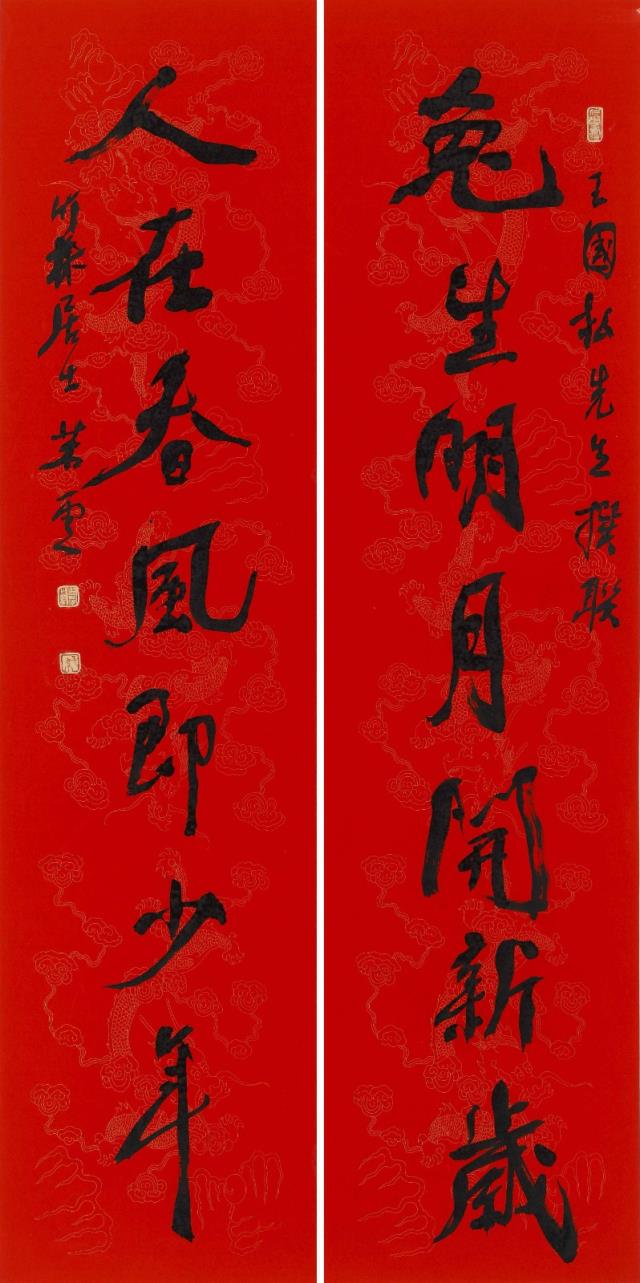 王國钦先生撰聯
兔生明月開新歲
人在春風即少年
竹林居士